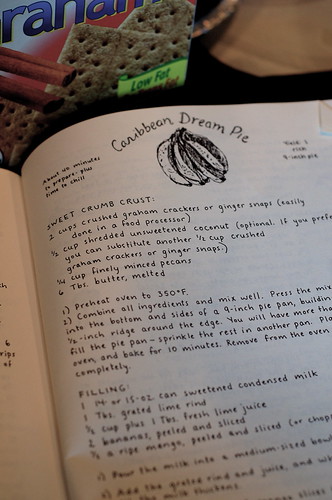 raham
Low Fat
Caribbean Dream Pie
About 40 minutes
to prepare, plus
time to chill
Yield: 1
rich
9-inch pie
SWEET CRUMB CRUST:
2 cups crushed graham crackers or ginger snaps (easily
done in a food processor)
1/2 cup shredded unsweetened coconut (optional. If you prefe
you can substitute another 1/2 cup crushed
graham crackers or ginger snaps.)
1/4 cup finely minced pecans
6 Tbs. butter, melted
1) Preheat oven to 350°F.
2) Combine all ingredients and mix well. Press the mix
into the bottom and sides of a 9-inch pie pan, building
1/2-inch ridge around the edge. You will have more tha
fill the pie pan - sprinkle the rest in another pan. Pla
oven, and bake for 10 minutes. Remove from the oven
completely.
FILLING:
1 14- or 15-oz can sweetened condensed milk
1 Tbs. grated lime rind
1/2 cup plus 1 Tbs. fresh lime juice
2 bananas, peeled and sliced
1/2 a ripe mango, peeled and sliced (or chop
1) Pour the milk into a medium-sized bow
2) Add the grated rind and juice, and wh
the milk thickens
6
rips
of